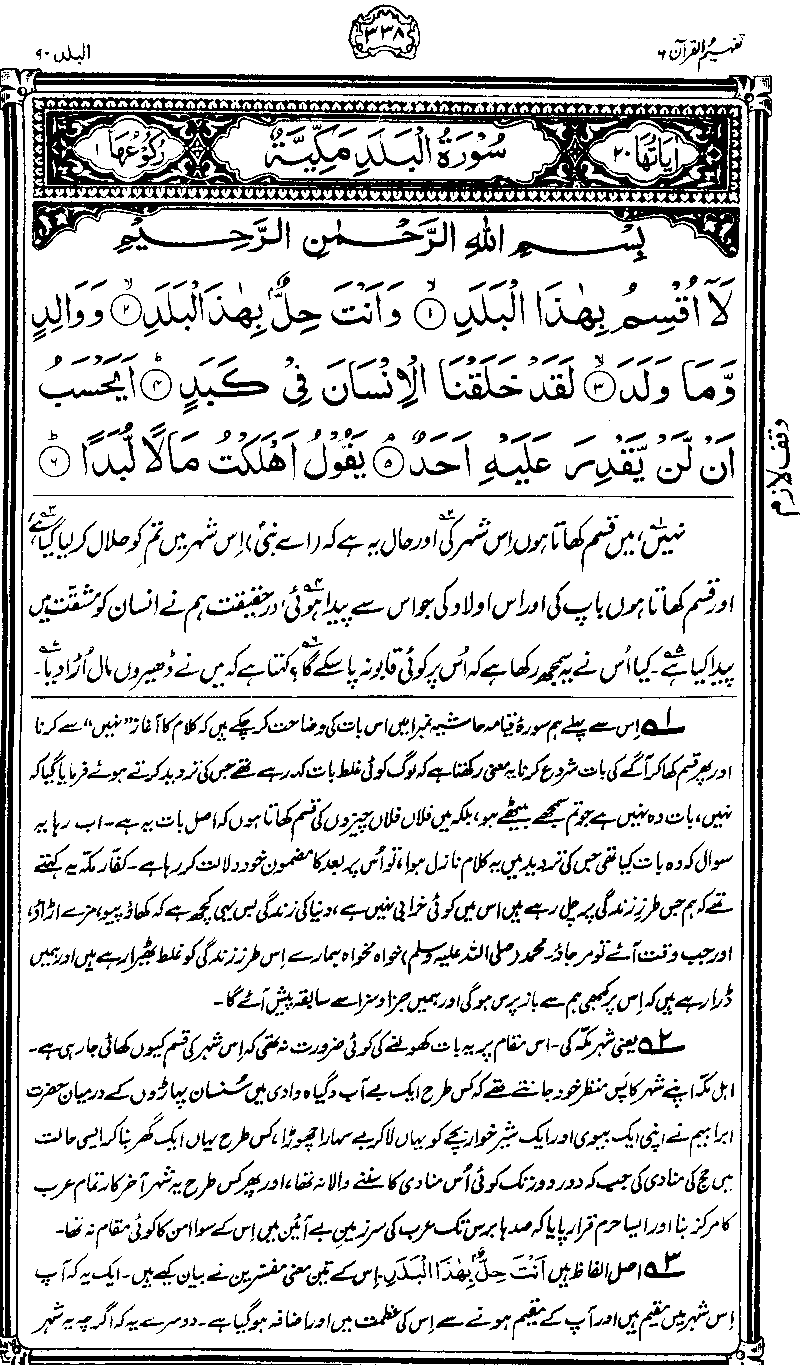 تفہیم القرآن ۶
۳۳۸
البلد ۹۰
اٰيَاتُهَا ۲۰
سُوْرَةُ الْبَلَدِ مَكِّيَّةٌ
رُكُوْعُهَا ۱
بِسْمِ اللّٰهِ الرَّحْمٰنِ الرَّحِيْمِ
لَآ اُقْسِمُ بِهٰذَا الْبَلَدِ ۙ۱ وَاَنْتَ حِلٌّۢ بِهٰذَا الْبَلَدِ ۙ۲ وَوَالِدٍ
وَّمَا وَلَدَ ۙ۳ لَقَدْ خَلَقْنَا الْاِنْسَانَ فِيْ كَبَدٍ ؕ۴ اَيَحْسَبُ
اَنْ لَّنْ يَّقْدِرَ عَلَيْهِ اَحَدٌ ۘ۵ يَقُوْلُ اَهْلَكْتُ مَالًا لُّبَدًا ؕ۶
وقف لازم
نہیں،۱ میں قسم کھاتا ہوں اِس شہر کی۲ اور حال یہ ہے کہ (اے نبیؐ) اِس شہر میں تم کو حلال کر لیا گیا ہے،۳
اور قسم کھاتا ہوں باپ کی اور اس اولاد کی جو اس سے پیدا ہوئی،۴ درحقیقت ہم نے انسان کو مشقت میں
پیدا کیا ہے۔۵ کیا اُس نے یہ سمجھ رکھا ہے کہ اُس پر کوئی قابو نہ پا سکے گا؟۶ کہتا ہے کہ میں نے ڈھیروں مال اُڑا دیا۔۷
۱؎ اِس سے پہلے ہم سورۂ قیامہ حاشیہ نمبر ۱ میں اس بات کی وضاحت کر چکے ہیں کہ کلام کا آغاز ”نہیں“ سے کرنا
اور پھر قسم کھا کر آگے کی بات شروع کرنا یہ معنی رکھتا ہے کہ لوگ کوئی غلط بات کہہ رہے تھے جس کی تردید کرتے ہوئے فرمایا گیا کہ
نہیں، بات وہ نہیں ہے جو تم سمجھے بیٹھے ہو، بلکہ میں فلاں فلاں چیزوں کی قسم کھاتا ہوں کہ اصل بات یہ ہے۔ اب رہا یہ
سوال کہ وہ بات کیا تھی جس کی تردید میں یہ کلام نازل ہوا، تو اُس پر بعد کا مضمون خود دلالت کر رہا ہے۔ کفّارِ مکّہ یہ کہتے
تھے کہ ہم جس طرزِ زندگی پر چل رہے ہیں اس میں کوئی خرابی نہیں ہے، دنیا کی زندگی بس یہی کچھ ہے کہ کھاؤ پیو، مزے اڑاؤ،
اور جب وقت آئے تو مر جاؤ۔ محمد (صلی اللہ علیہ وسلم) خواہ مخواہ ہمارے اِس طرزِ زندگی کو غلط ٹھیرا رہے ہیں اور ہمیں
ڈرا رہے ہیں کہ اِس پر کبھی ہم سے باز پرس ہوگی اور ہمیں جزا و سزا سے سابقہ پیش آئے گا۔
۲؎ یعنی شہر مکّہ کی۔ اس مقام پر یہ بات کھولنے کی کوئی ضرورت نہ تھی کہ اِس شہر کی قسم کیوں کھائی جا رہی ہے۔
اہل مکّہ اپنے شہر کا پس منظر خود جانتے تھے کہ کس طرح ایک بے آب و گیاہ وادی میں سُنسان پہاڑوں کے درمیان حضرت
ابراہیمؑ نے اپنی ایک بیوی اور ایک شیر خوار بچے کو یہاں لا کر بے سہارا چھوڑا، کس طرح یہاں ایک گھر بنا کر ایسی حالت
میں حج کی منادی کی جب کہ دور دور تک کوئی اُس منادی کا سننے والا نہ تھا، اور پھر کس طرح یہ شہر آخر کار تمام عرب
کا مرکز بنا اور ایسا حرم قرار پایا کہ صدہا برس تک عرب کی سرزمینِ بے آئین میں اِس کے سوا امن کا کوئی مقام نہ تھا۔
۳؎ اصل الفاظ ہیں اَنْتَ حِلٌّۢ بِهٰذَا الْبَلَدِ۔ اِس کے تین معنی مفسّرین نے بیان کیے ہیں۔ ایک یہ کہ آپ
اِس شہر میں مقیم ہیں اور آپ کے مقیم ہونے سے اِس کی عظمت میں اور اضافہ ہو گیا ہے۔ دوسرے یہ کہ اگرچہ یہ شہر